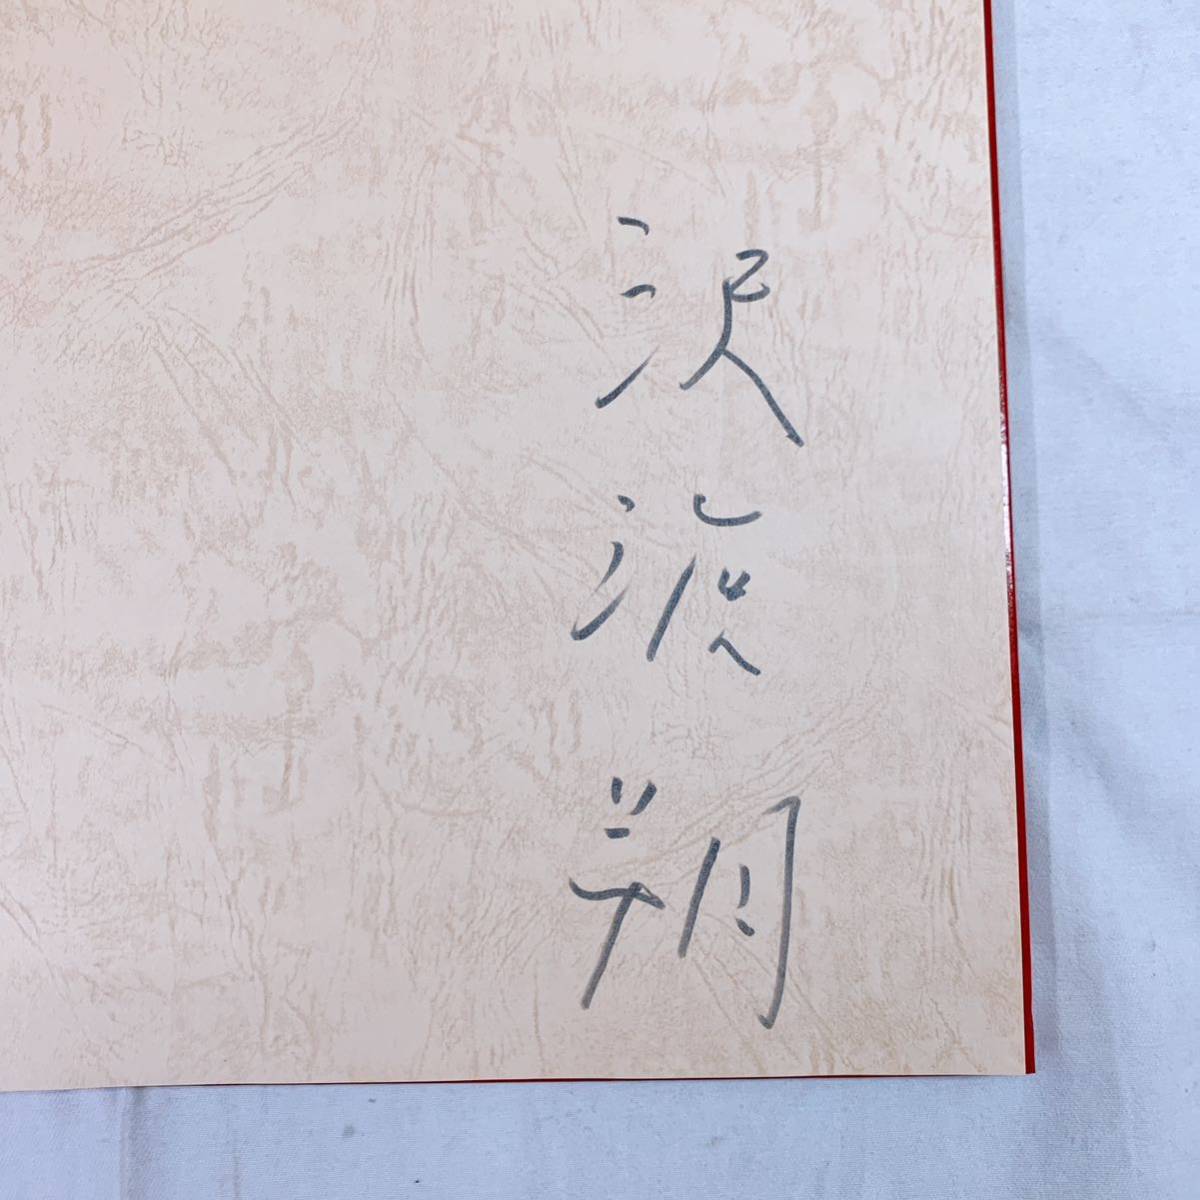 沢渡朔